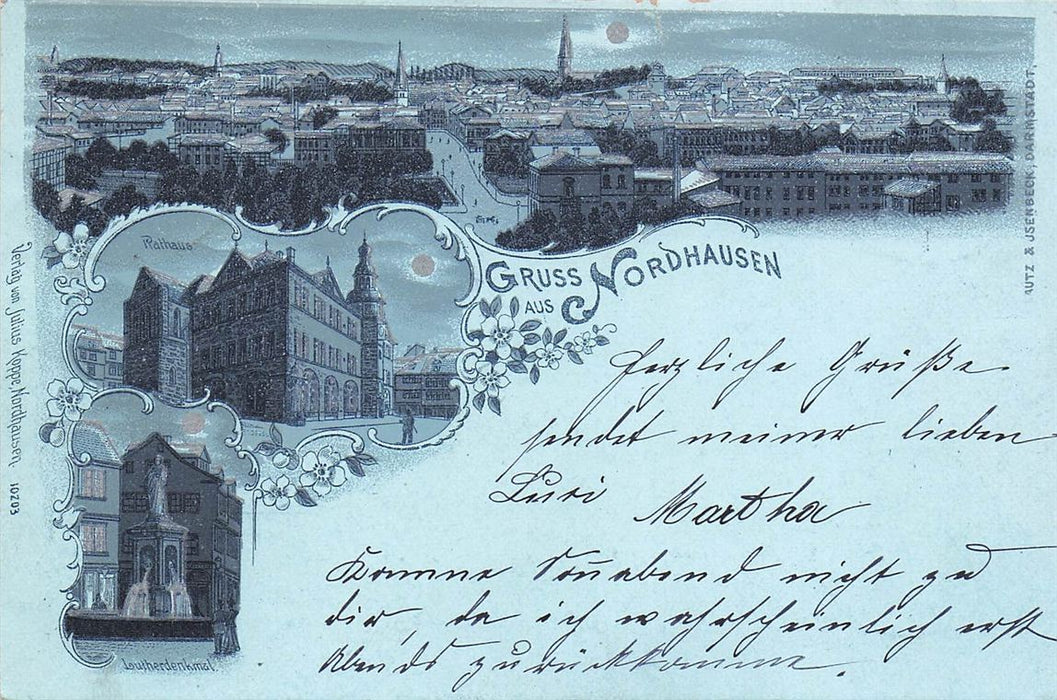 Rathaus
GRUSS
AUS NORDHAUSEN
Lutherdenkmal.
Verlag von Julius Koppe, Nordhausen 10203
AUTZ & ISENBECK, DARMSTADT.
Herzliche Grüße
sendet meiner lieben
Martha
Komme Sonnabend nicht zu
dir, da ich wahrscheinlich erst
Abends zurückkomme.